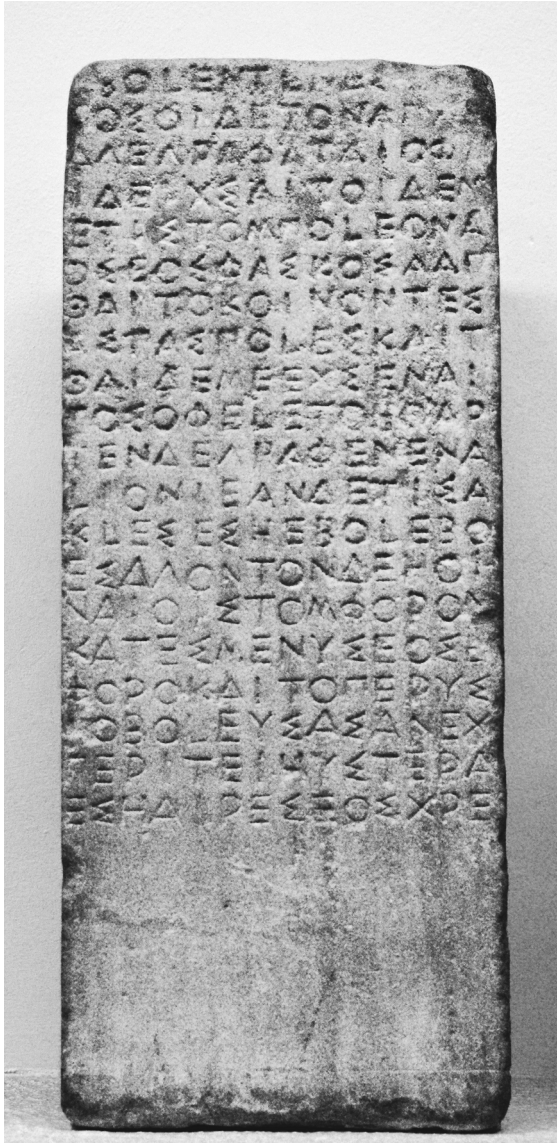 ΒΟΛΕΝΤΕΙΜΕΣ
ΡΟΣΟΙΔΕΤΟΝΑΠΑ
ΑΓΕΓΡΑΦΑΤΑΙΟΦΕ
ΙΔΕΙΧΣΑΙΤΟΙΔΕΜ
ΕΤΙΣΤΟΜΠΟΛΕΟΝΑ
ΟΣΕΟΣΦΑΣΚΟΣΑΑΠ
ΘΑΙΤΟΚΟΙΝΟΝΤΕΣ
ΙΣΤΑΣΠΟΛΕΣΚΑΙΤ
ΘΑΙΔΕΜΕΕΧΣΕΝΑΙ
ΤΟΣΟΦΕΛΕΤΟΗΟΓΡ
ΤΕΝΔΕΓΡΑΦΕΝΕΝΑ
ΛΙΟΝΙΕΑΝΔΕΤΙΣΑ
ΚΛΕΣΕΣΗΕΒΟΛΕΒΟ
ΕΣΑΓΟΝΤΟΝΔΕΗΟΙ
ΝΑΙΟΙΣΤΟΜΦΟΡΟΝ
ΚΑΤΕΣΜΕΝΥΣΕΟΣΕ
ΦΟΡΟΚΑΙΤΟΠΕΡΥΣ
ΡΟΒΟΛΕΥΣΑΣΑΝΕΧ
ΠΕΡΙΤΕΙΗΥΣΤΕΡΑ
ΕΣΗΑΙΡΕΣΕΟΣΧΡΕ